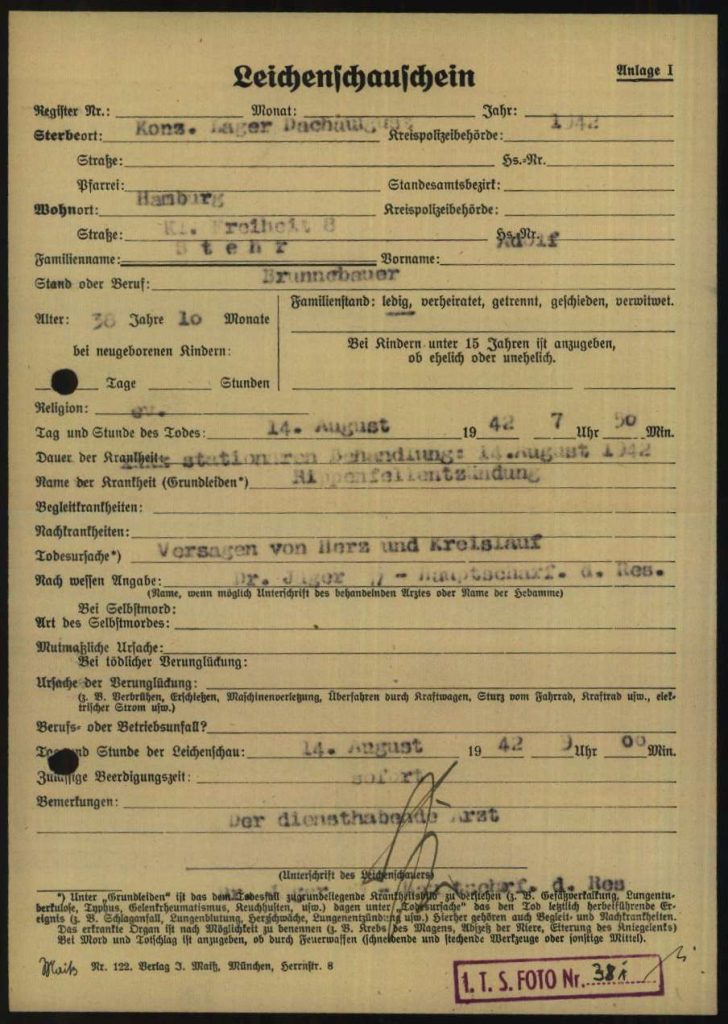 Leichenschauschein
Anlage I
Register Nr.: Monat: Jahr: 1942
Sterbeort: Konz. Lager Dachau August Kreispolizeibehörde:
Straße: Hs.-Nr.
Pfarrei: Standesamtsbezirk:
Wohnort: Hamburg Kreispolizeibehörde:
Straße: Kl. Freiheit 8 Hs.-Nr.
Familienname: Stehr Vorname: Adolf
Stand oder Beruf: Brunnebauer
Alter: 38 Jahre 10 Monate
bei neugeborenen Kindern:
Tage Stunden
Familienstand: ledig, verheiratet, getrennt, geschieden, verwitwet.
Bei Kindern unter 15 Jahren ist anzugeben,
ob ehelich oder unehelich.
Religion: ev.
Tag und Stunde des Todes: 14. August 1942 7 Uhr 50 Min.
Dauer der Krankheit: stationären Behandlung: 14.August 1942
Name der Krankheit (Grundleiden*) Rippenfellentzündung
Begleitkrankheiten:
Nachkrankheiten:
Todesursache*) Versagen von Herz und Kreislauf
Nach wessen Angabe: Dr. Jäger - Hauptscharf. d. Res.
(Name, wenn möglich Unterschrift des behandelnden Arztes oder Name der Hebamme)
Bei Selbstmord:
Art des Selbstmordes:
Mutmaßliche Ursache:
Bei tödlicher Verunglückung:
Ursache der Verunglückung:
(z. B. Verbrühen, Erschießen, Maschinenverletzung, Überfahren durch Kraftwagen, Sturz vom Fahrrad, Kraftrad usw., elek-
trischer Strom usw.)
Berufs- oder Betriebsunfall?
Tag und Stunde der Leichenschau: 14. August 1942 9 Uhr 00 Min.
Zulässige Beerdigungszeit: sofort
Bemerkungen:
Der diensthabende Arzt
(Unterschrift des Leichenschauers)
d. Res
*) Unter „Grundleiden“ ist das dem Todesfall zugrundeliegende Krankheitsbild zu verstehen (z. B. Gefäßverkalkung, Lungentu-
berkulose, Typhus, Gelenkrheumatismus, Keuchhusten, usw.) dagen unter „Todesursache“ das den Tod letztlich herbeiführende Er-
eignis (z. B. Schlaganfall, Lungenblutung, Herzschwäche, Lungenentzündung usw.) Hierher gehören auch Begleit- und Nachkrankheiten.
Das erkrankte Organ ist nach Möglichkeit zu benennen (z. B. Krebs des Magens, Abszeß der Niere, Eiterung des Kniegelenks)
Bei Mord und Totschlag ist anzugeben, ob durch Feuerwaffen (schneidende und stechende Werkzeuge oder sonstige Mittel).
Maiß Nr. 122. Verlag J. Maiß, München, Herrnstr. 8
I. T. S. FOTO Nr. 38